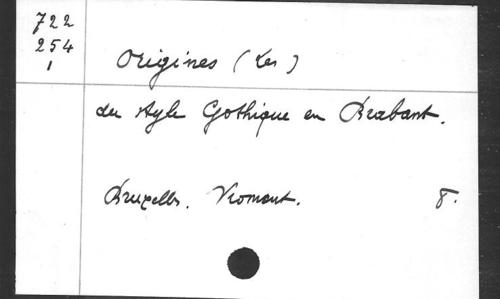 722
254
1
Origines (Les)
du style Gothique en Brabant.
Bruxelles. Vromant. 8.